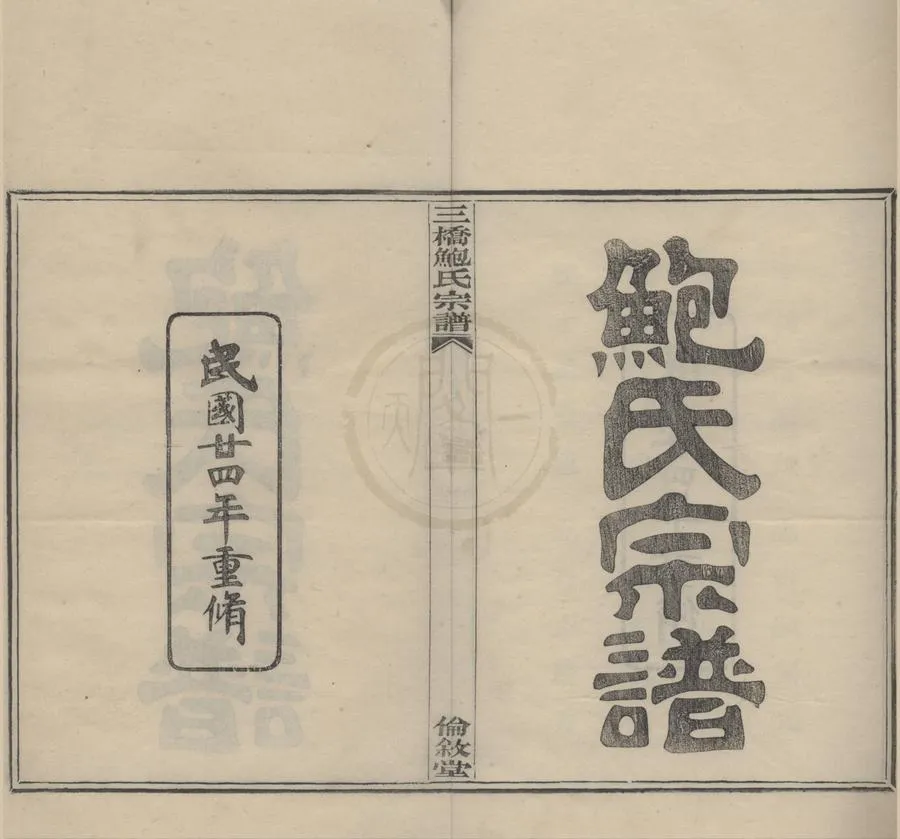 鮑氏宗譜
三橋鮑氏宗譜
倫敘堂
民國廿四年重脩